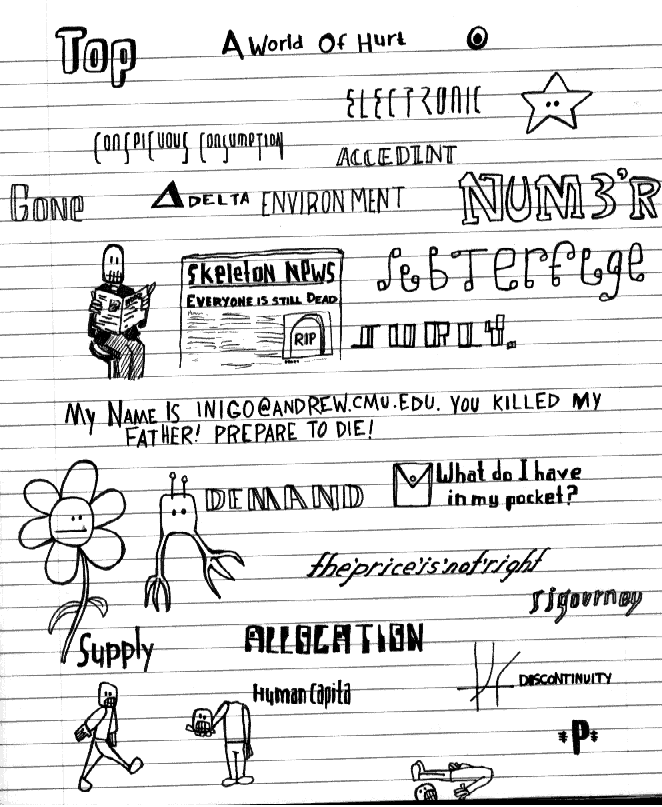 Top
A World Of Hurt
ELECTRONIC
CONSPICUOUS CONSUMPTION
ACCEDINT
GONE
DELTA ENVIRONMENT
NUM3'R
SKELETON NEWS
EVERYONE IS STILL DEAD
RIP
SUBTERFUGE
SURLY.
MY NAME IS INIGO@ANDREW.CMU.EDU. YOU KILLED MY
FATHER! PREPARE TO DIE!
DEMAND
What do I have
in my pocket?
the'price'is'not'right
sigourney
Supply
ALLOCATION
Human Capita
DISCONTINUITY
*P*